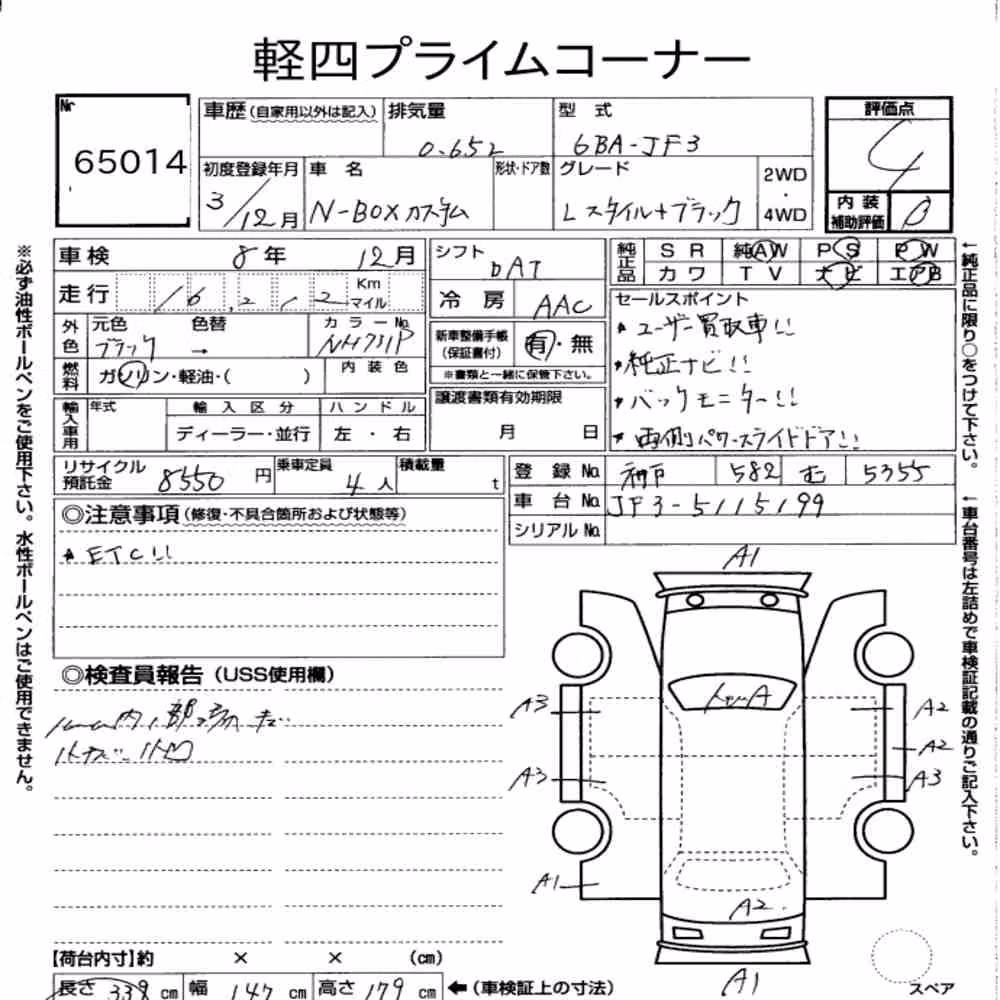 軽四プライムコーナー
Nr 65014
車歴(自家用以外は記入) 排気量 0.65L 型式 6BA-JF3
評価点 4
初度登録年月 3/12月 車名 N-BOXカスタム 形状・ドア数 グレード Lスタイル+ブラック 2WD・4WD
内装補助評価 B
車検 8年 12月 シフト DAT
純正品 SR 純AW PS PW
カワ TV ナビ エアB
走行 16,212 Km マイル
冷房 AAC
外色 元色 ブラック 色替 → カラーNo. NH731P
新車整備手帳(保証書付) 有・無
※書類と一緒に保管下さい。
燃料 ガソリン・軽油・( ) 内装色
セールスポイント
★ユーザー買取車!!
★純正ナビ!!
★バックモニター!!
★両側パワースライドドア!!
輸入車用 年式 輸入区分 ハンドル
ディーラー・並行 左・右
譲渡書類有効期限
月 日
リサイクル預託金 8550円 乗車定員 4人 積載量 t
登録No. 神戸 582 む 5355
車台No. JF3-5115199
シリアルNo.
◎注意事項(修復・不具合箇所および状態等)
★ETC!!
◎検査員報告(USS使用欄)
小キズ 小凹
A1
A3
A2
A2
A3
A3
A1
A2
A1
【荷台内寸】約 × × (cm)
長さ 339cm 幅 147cm 高さ 179cm ←(車検証上の寸法)
スペア
※必ず油性ボールペンをご使用下さい。水性ボールペンはご使用できません。
←純正品に限り○をつけて下さい。
←車台番号は左詰めで車検証記載の通りご記入下さい。